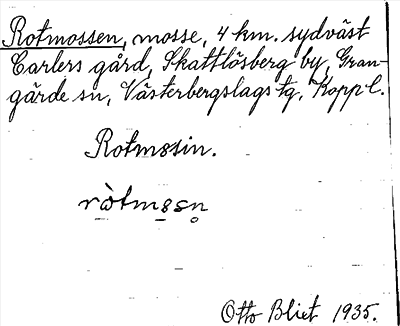 Rotmossen, mosse, 4 km. sydväst
Carlers gård, Skattlösberg by, Gran-
gärde sn, Västerbergslags tg, Kopp l.
Rotmosin.
ròtmosn̥
Otto Blixt 1935.